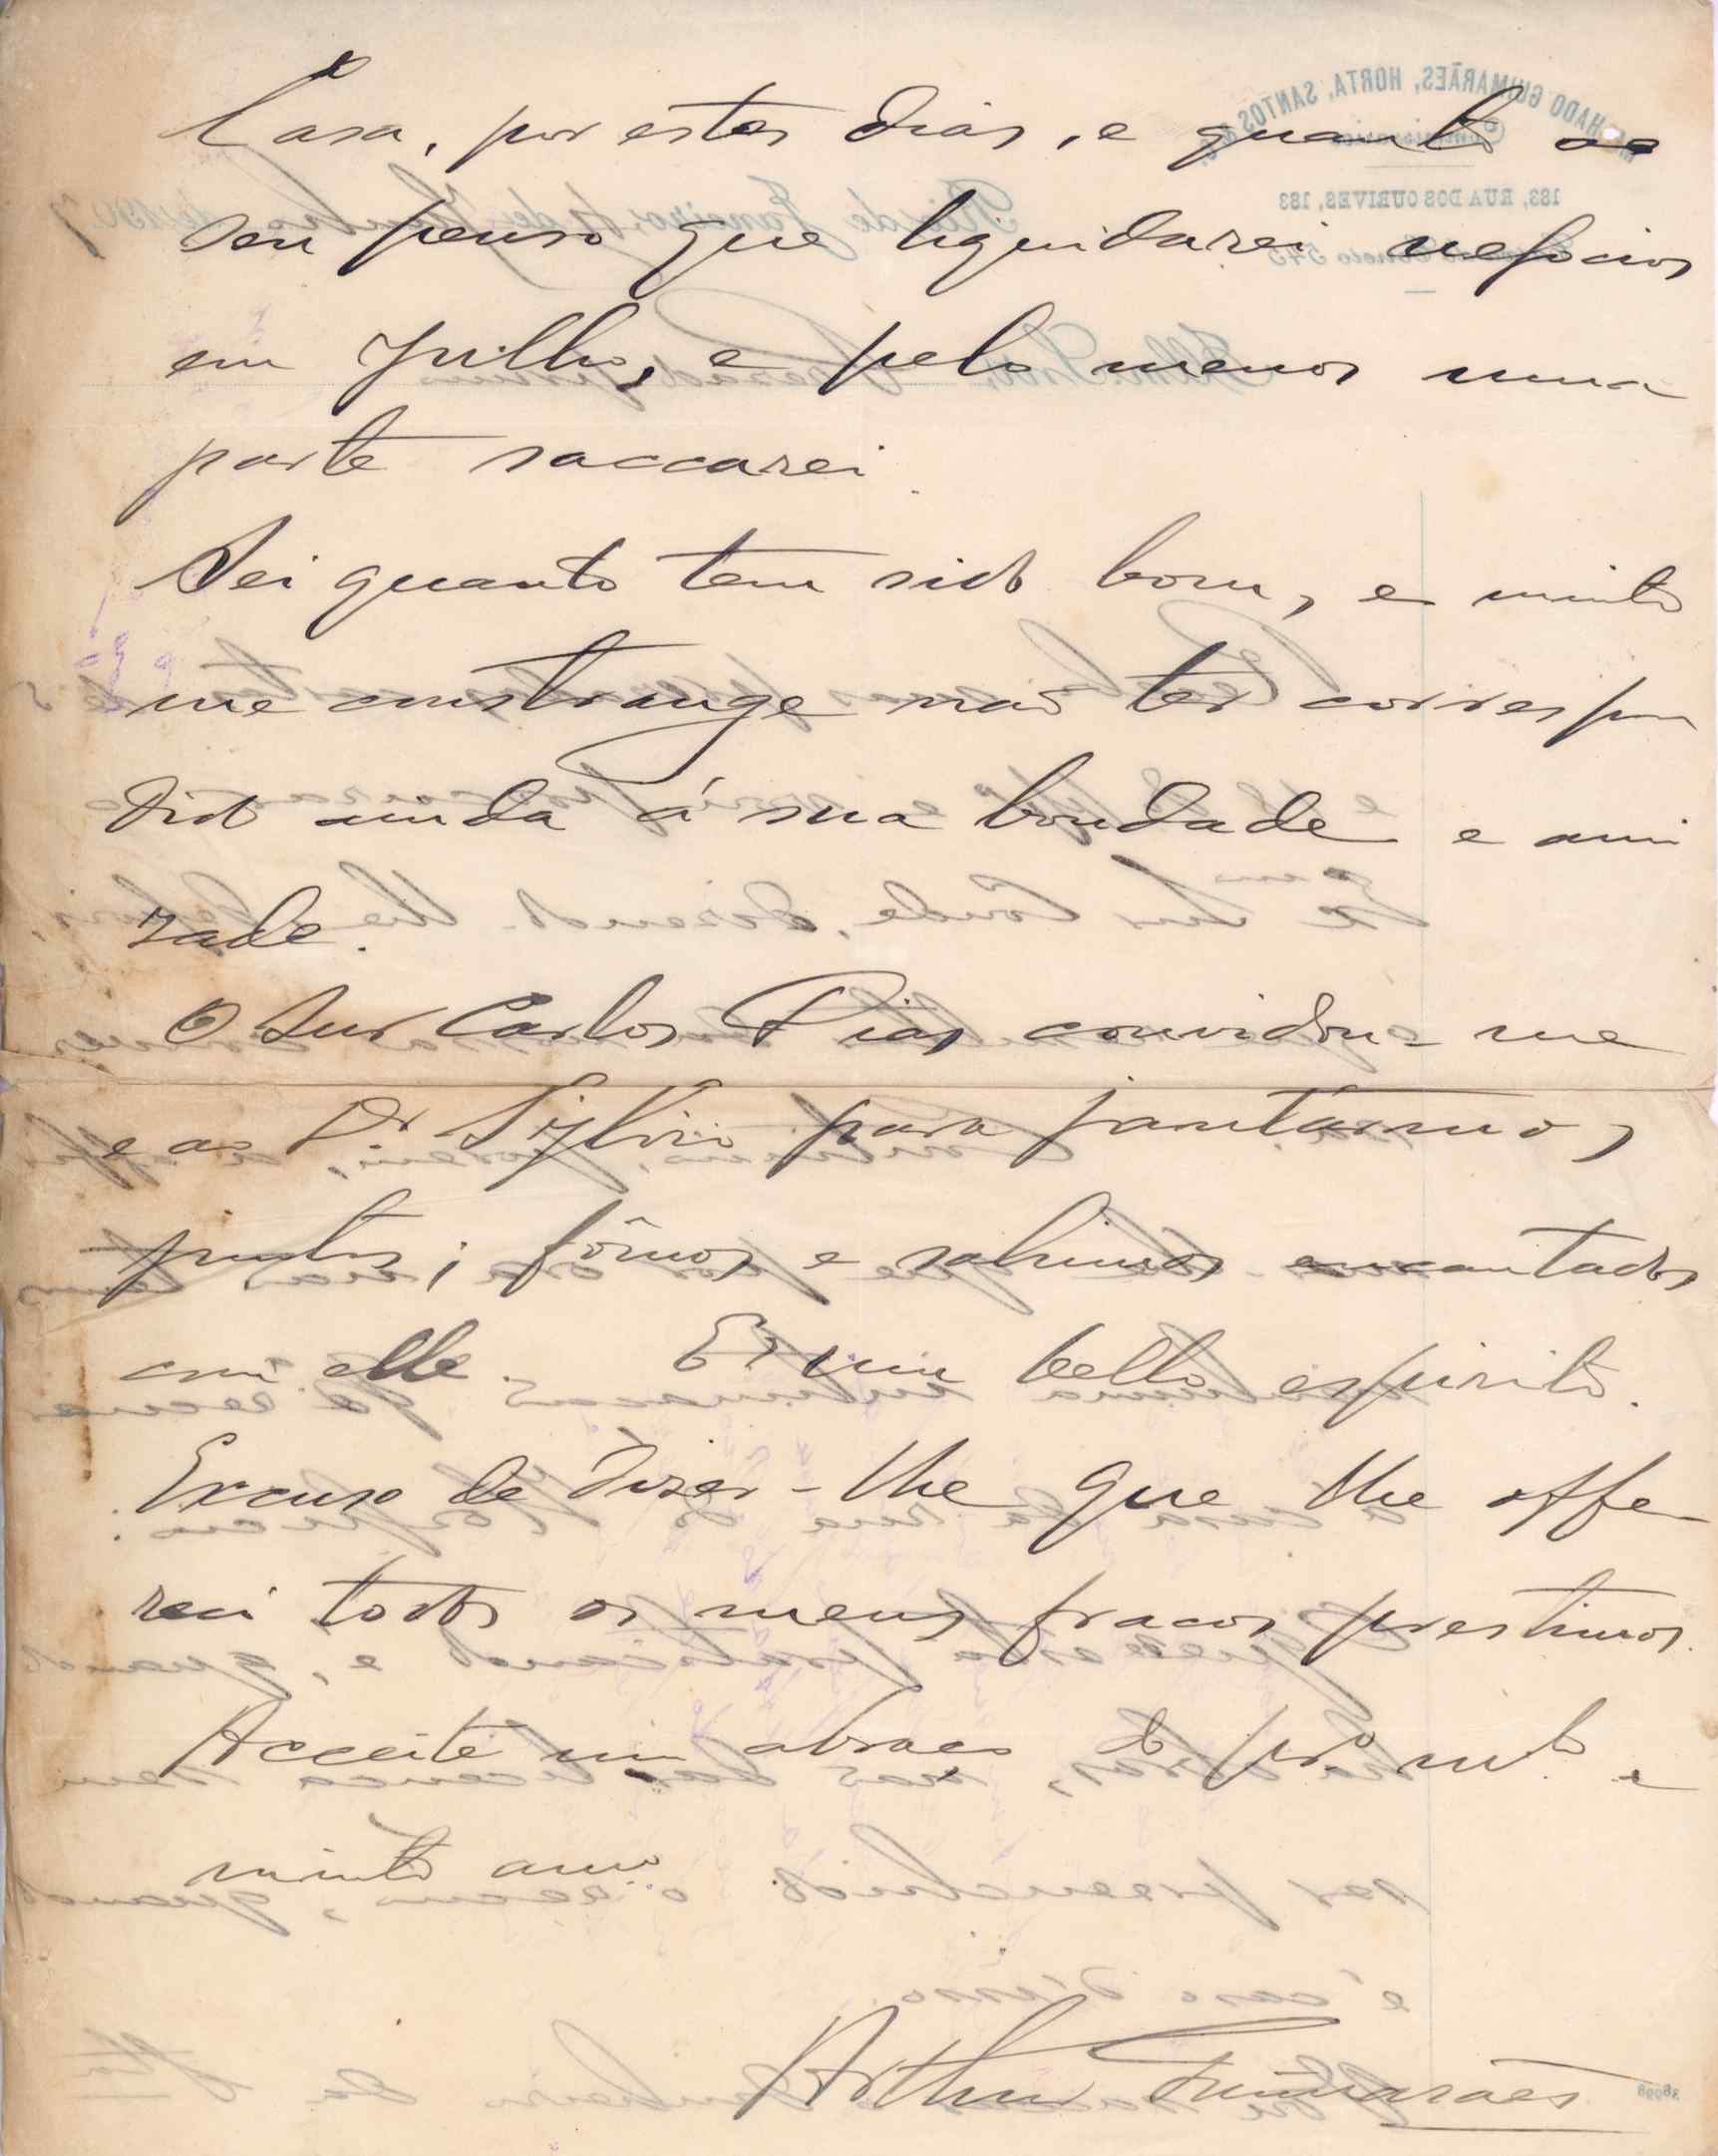 Casa, por estes dias, e quanto ao
seu penso que liquidarei negocios
em Julho, e pelo menos uma
parte saccarei.
Sei quanto tem sido bom, e muito
me constrange não ter correspon
dido ainda á sua bondade e ami
zade.
O Snr Carlos Dias convidou-me
e ao Dr. Sylvio para jantármos
juntos; fômos e sahimos encantados
com elle. E' um bello espirito.
Excuso de dizer-lhe que lhe offe
reci todos os meus fracos prestimos.
Acceite um abraço do pro mto e
muito amo
Arthur Guimarães